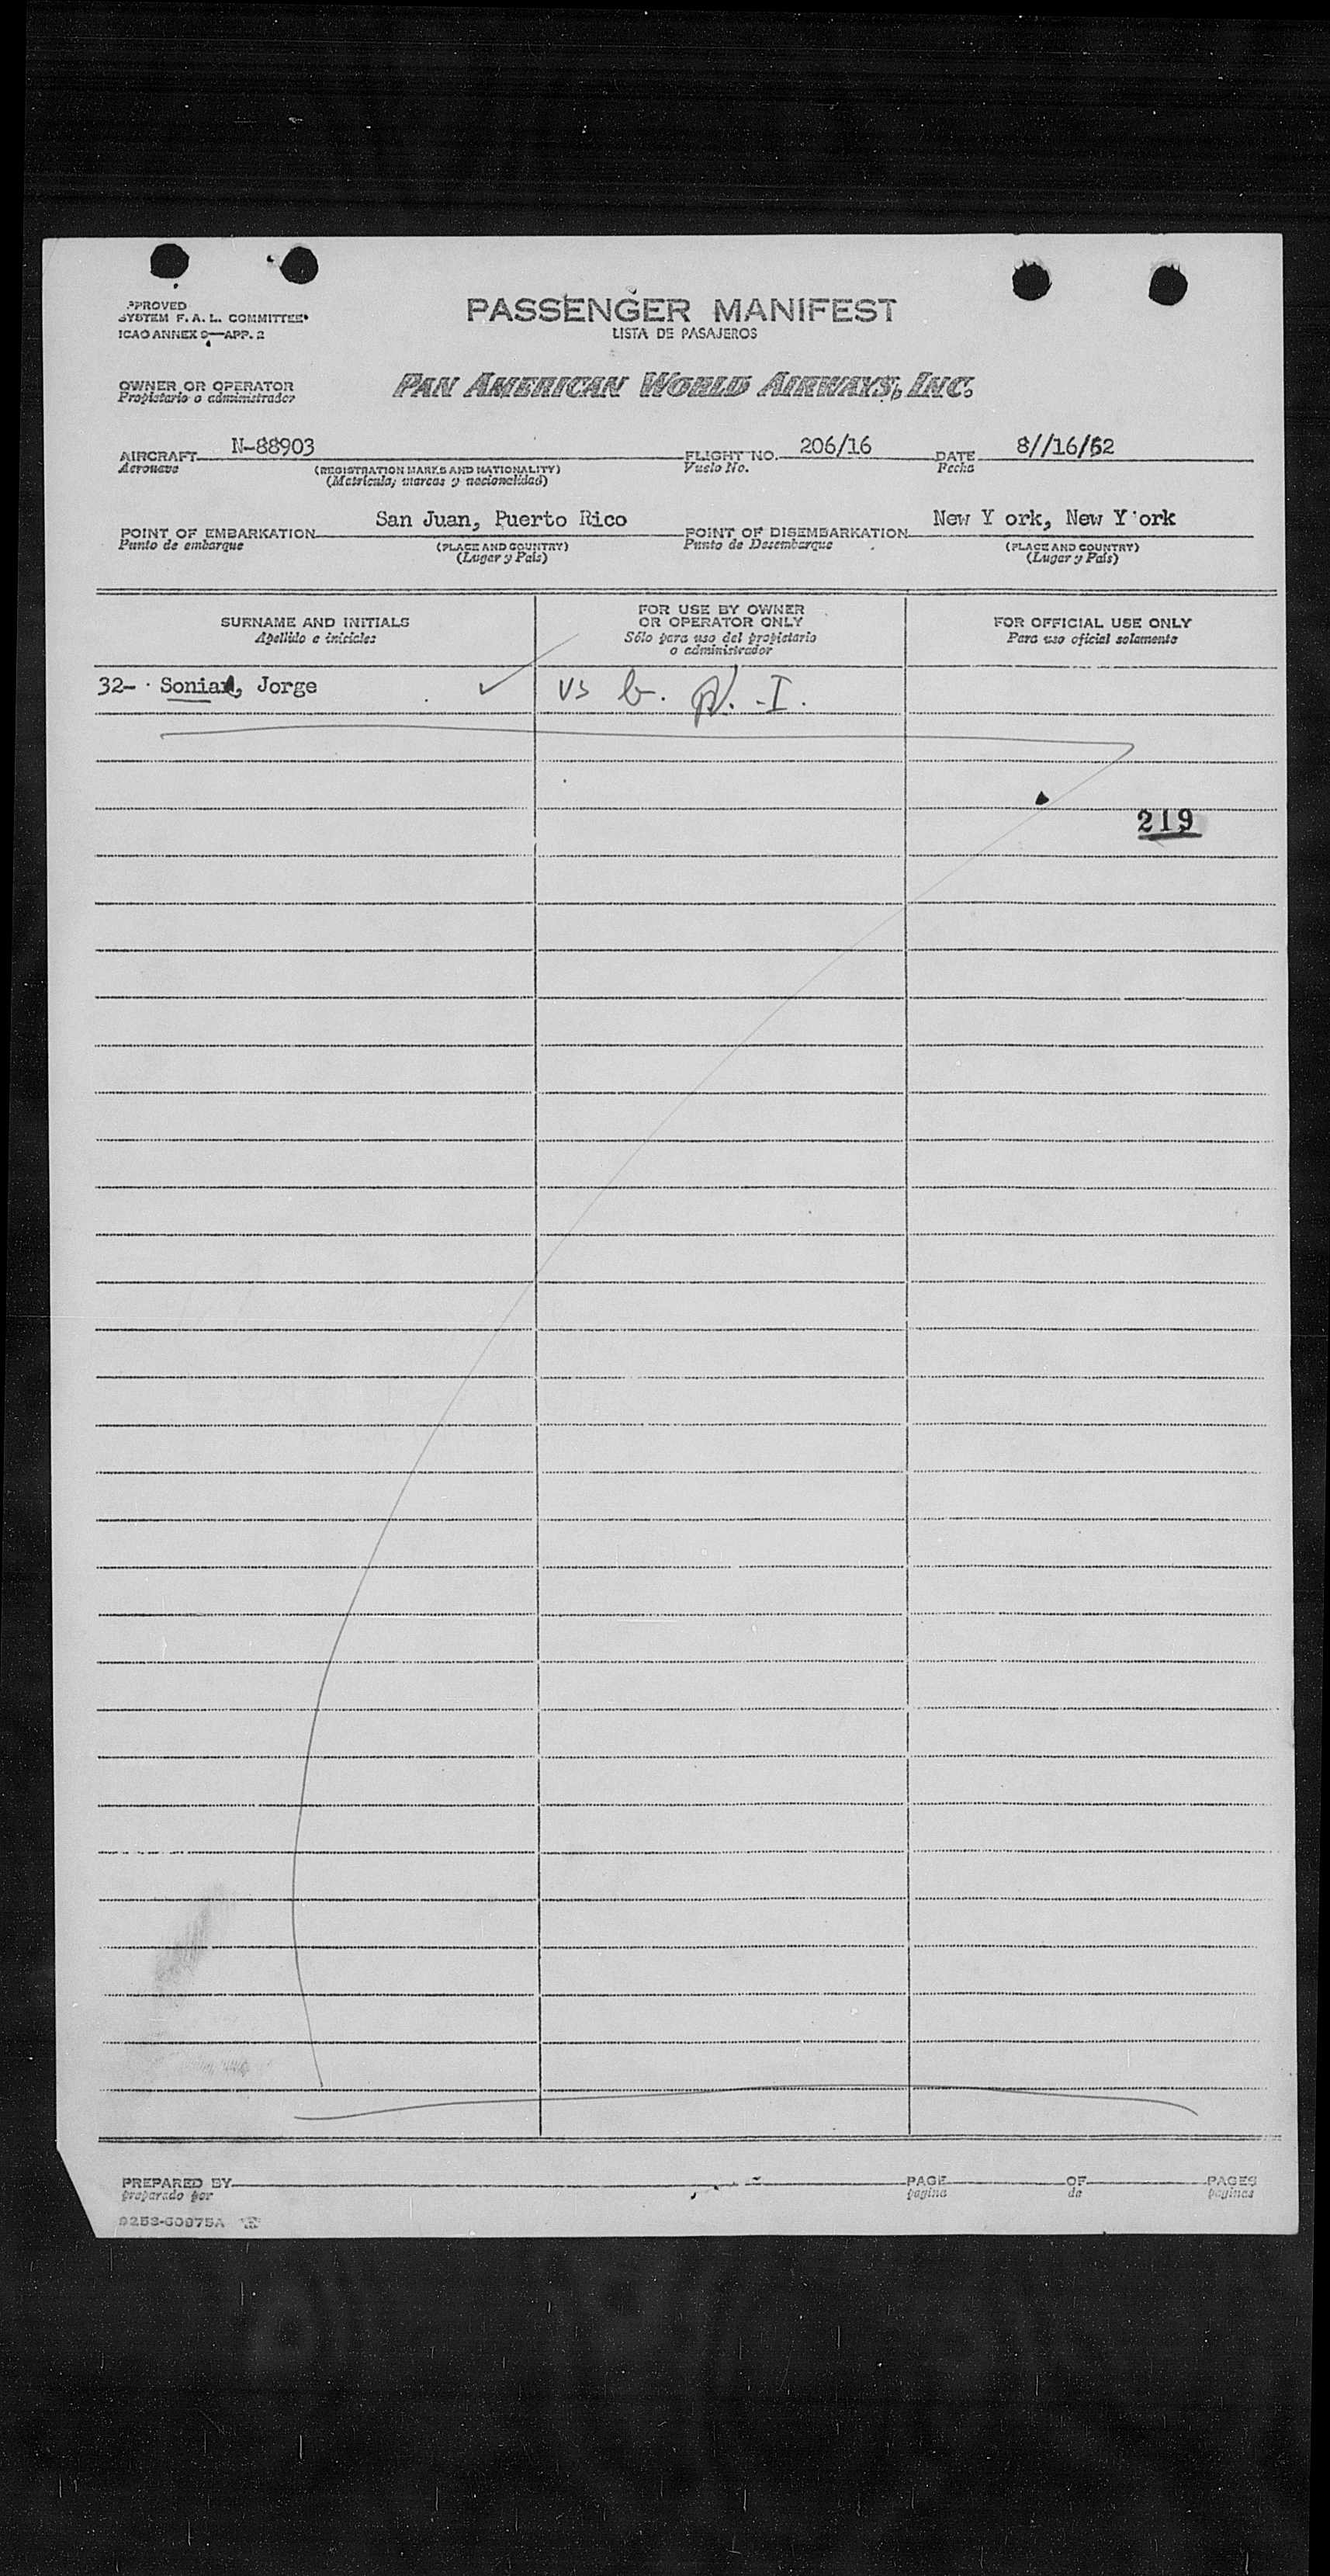 PASSENGER MANIFEST
LISTA DE PASAJEROS
PPROVED
SYSTEM F. A. L. COMMITTEE
ICAO ANNEX 9—APP. 2
OWNER OR OPERATOR
Propietario o administrador
PAN AMERICAN WORLD AIRWAYS, INC.
AIRCRAFT N-88903 FLIGHT NO. 206/16 DATE 8//16/52
Aeronave (REGISTRATION MARKS AND NATIONALITY) Vuelo No. Fecha
(Matricula, marcas y nacionalidad)
POINT OF EMBARKATION San Juan, Puerto Rico POINT OF DISEMBARKATION New Y ork, New Y ork
Punto de embarque (PLACE AND COUNTRY) Punto de Desembarque (PLACE AND COUNTRY)
(Lugar y País) (Lugar y País)
SURNAME AND INITIALS
Apellido e iniciales
FOR USE BY OWNER
OR OPERATOR ONLY
Sólo para uso del propietario
o administrador
FOR OFFICIAL USE ONLY
Para uso oficial solamente
32- Jorge ✓ vs I.
219
PREPARED BY PAGE OF PAGES
preparado por pagina de paginas
9253-60975A